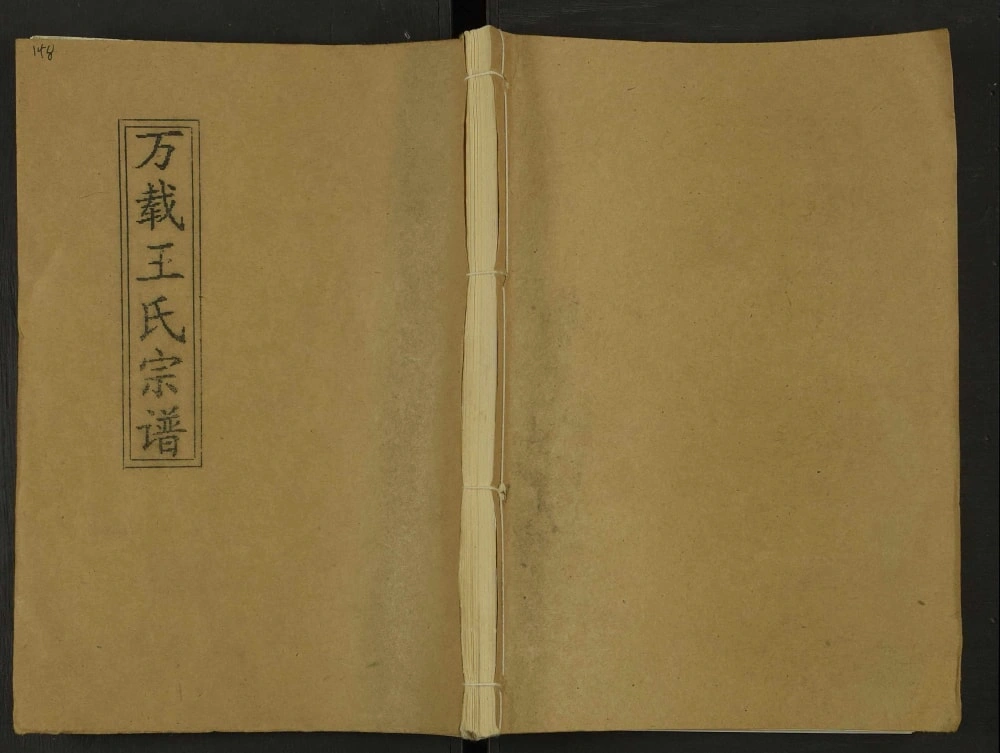 148
万载王氏宗谱